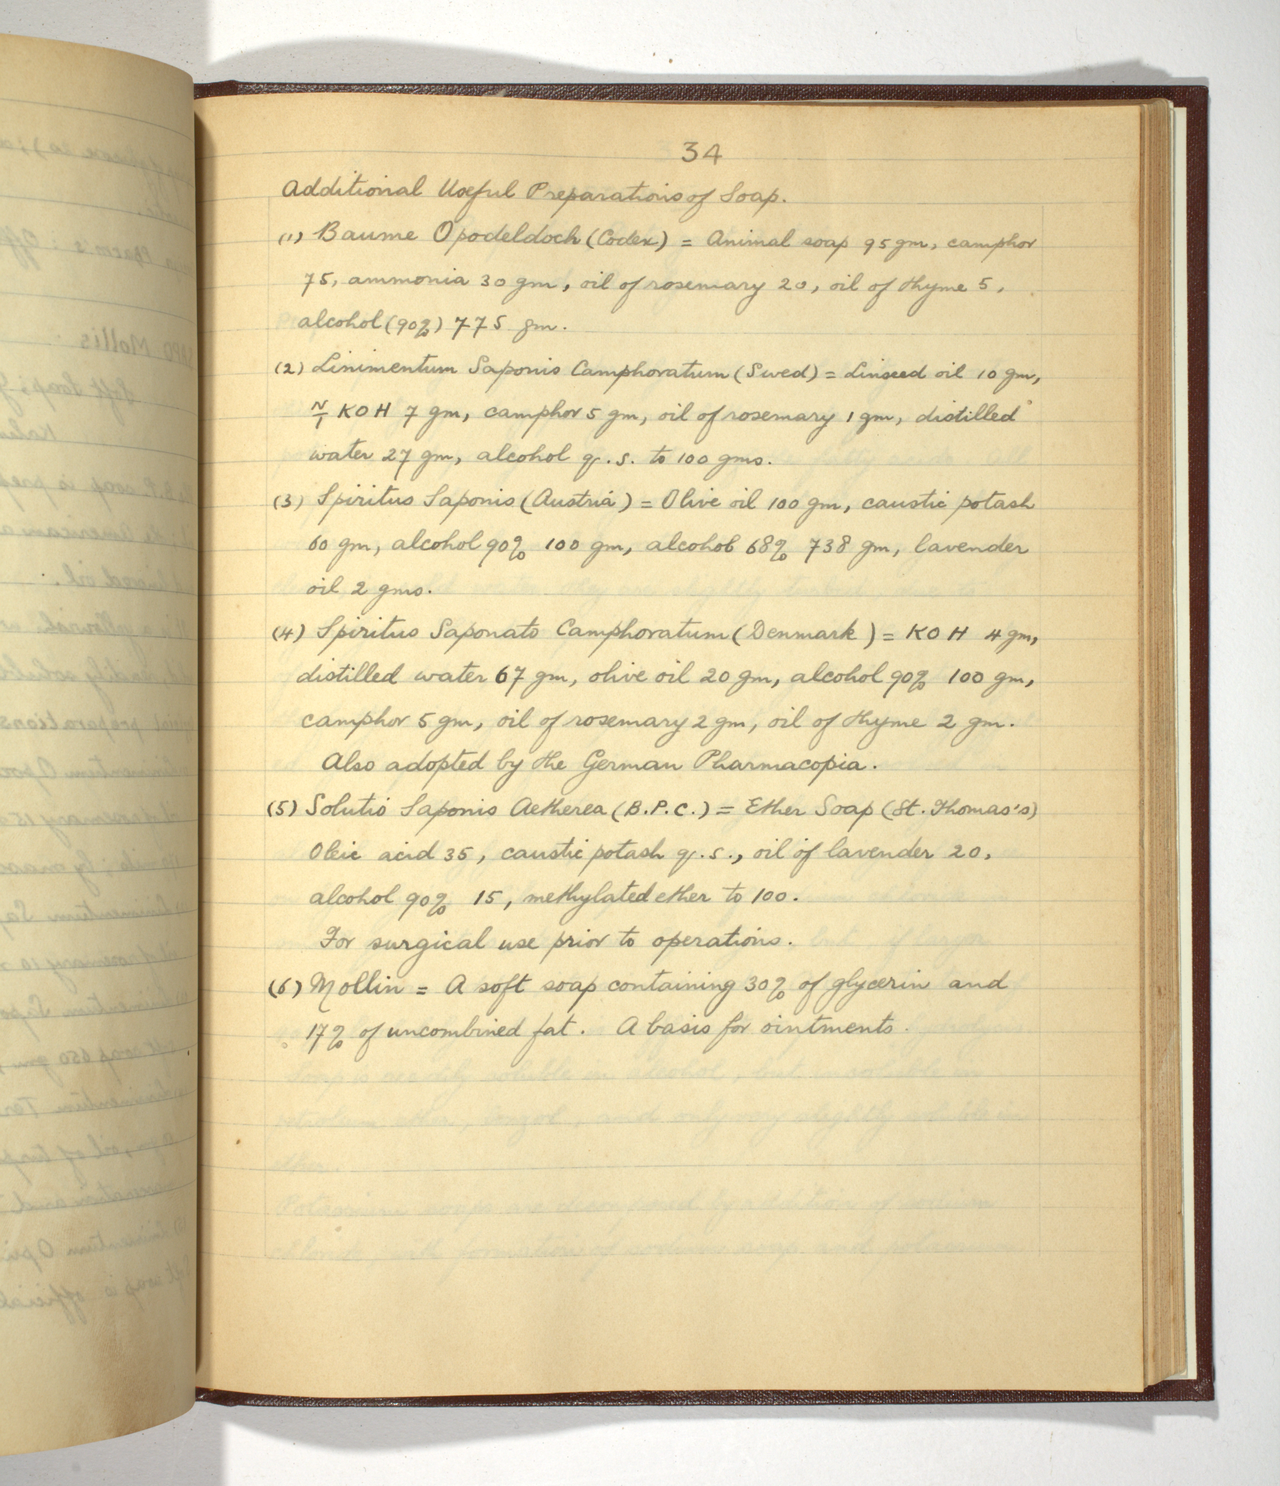 34
Additional Useful Preparations of Soap.
(1) Baume Opodeldoch (Codex) = Animal soap 95 gm, camphor
75, ammonia 30 gm, oil of rosemary 20, oil of thyme 5,
alcohol (90%) 775 gm.
(2) Linimentum Saponis Camphoratum (Swed) = Linseed oil 10 gm,
N/1 KOH 7 gm, camphor 5 gm, oil of rosemary 1 gm, distilled
water 27 gm, alcohol q.s. to 100 gms.
(3) Spiritus Saponis (Austria) = Olive oil 100 gm, caustic potash
60 gm, alcohol 90% 100 gm, alcohol 68% 738 gm, lavender
oil 2 gms.
(4) Spiritus Saponato Camphoratum (Denmark) = KOH 4 gm,
distilled water 67 gm, olive oil 20 gm, alcohol 90% 100 gm,
camphor 5 gm, oil of rosemary 2 gm, oil of thyme 2 gm.
Also adopted by the German Pharmacopia.
(5) Solutio Saponis Aetherea (B.P.C.) = Ether Soap (St. Thomas's)
Oleic acid 35, caustic potash q.s., oil of lavender 20,
alcohol 90% 15, methylated ether to 100.
For surgical use prior to operations.
(6) Mollin = A soft soap containing 30% of glycerin and
17% of uncombined fat. A basis for ointments.